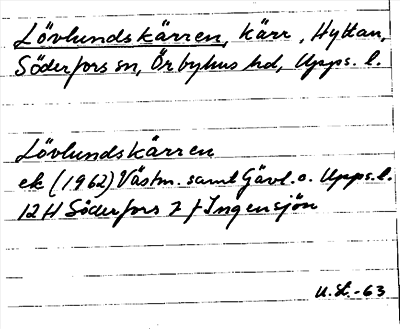 Lövlundskärren, kärr, Hyttan,
Söderfors sn, Örbyhus hd, Upps. l.
Lövlundskärren
ek (1962) Västm. samt Gävl. o. Upps. l.
12 H Söderfors 7 f Ingensjön
U.H.-63